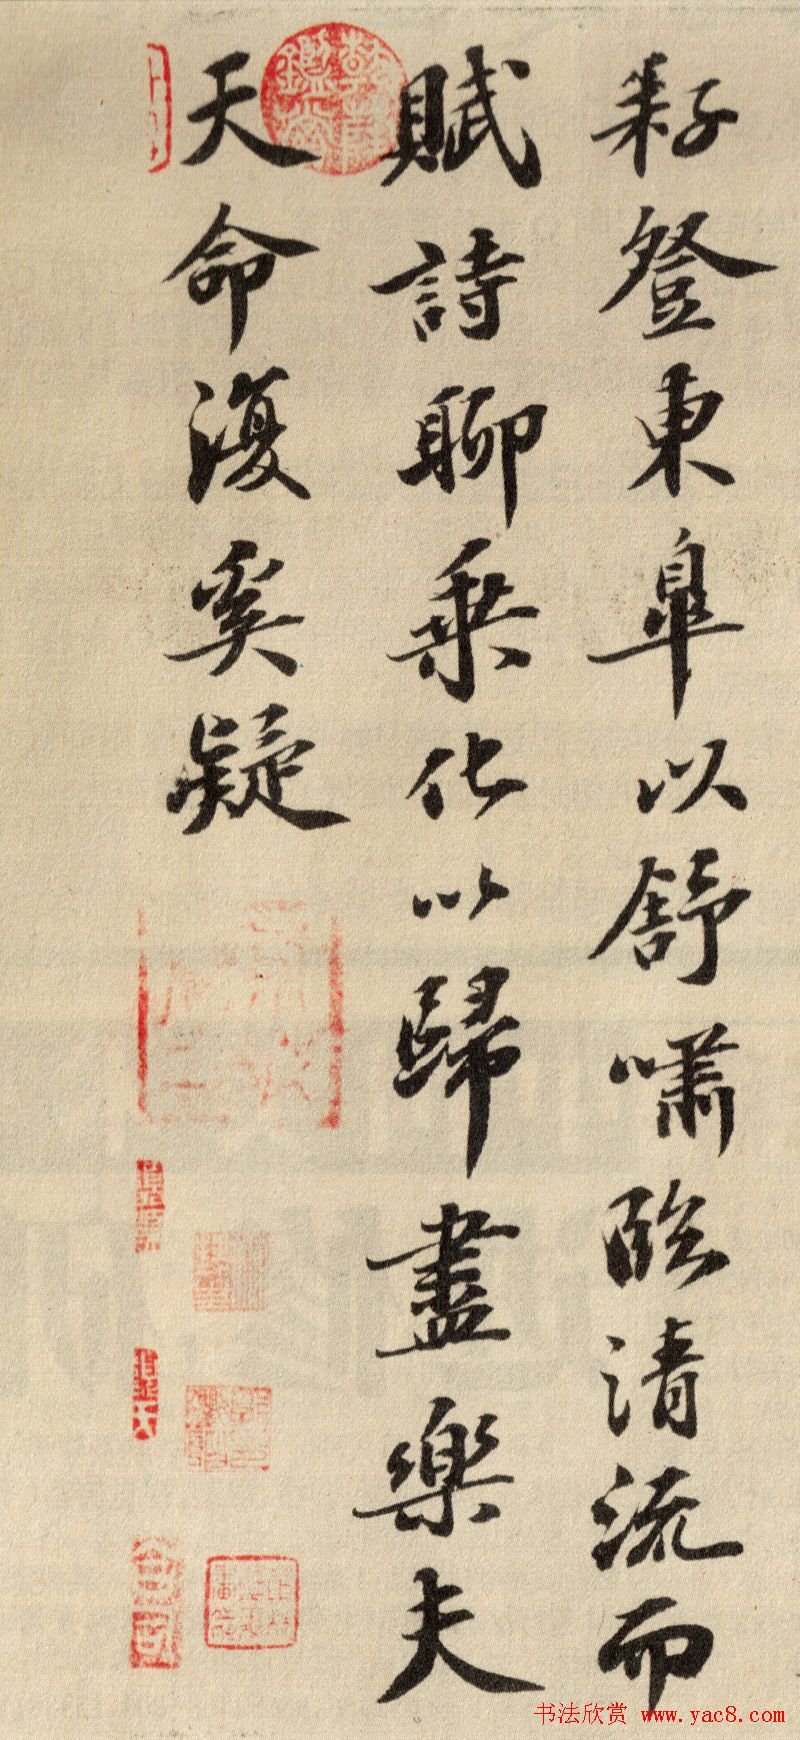 耔登東皋以舒嘯臨清流而
賦詩聊乘化以歸盡樂夫
天命復奚疑
书法欣赏 www.yac8.com